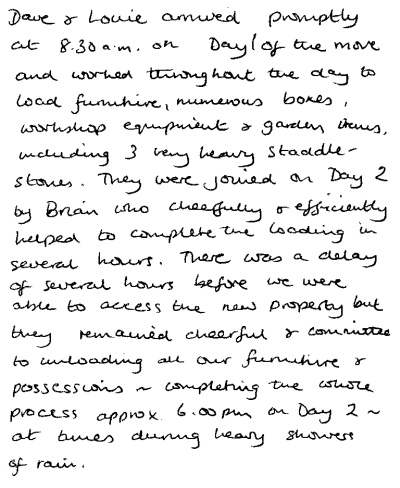 Dave & Louie arrived promptly
at 8.30 a.m. on Day 1 of the move
and worked throughout the day to
load furniture, numerous boxes,
workshop equipment & garden items,
including 3 very heavy Staddle-
stones. They were joined on Day 2
by Brian who cheerfully & efficiently
helped to complete the loading in
several hours. There was a delay
of several hours before we were
able to access the new property but
they remained cheerful & committe
to unloading all our furniture &
possessions ~ completing the whole
process approx. 6.00pm on Day 2 ~
at times during heavy showers
of rain.